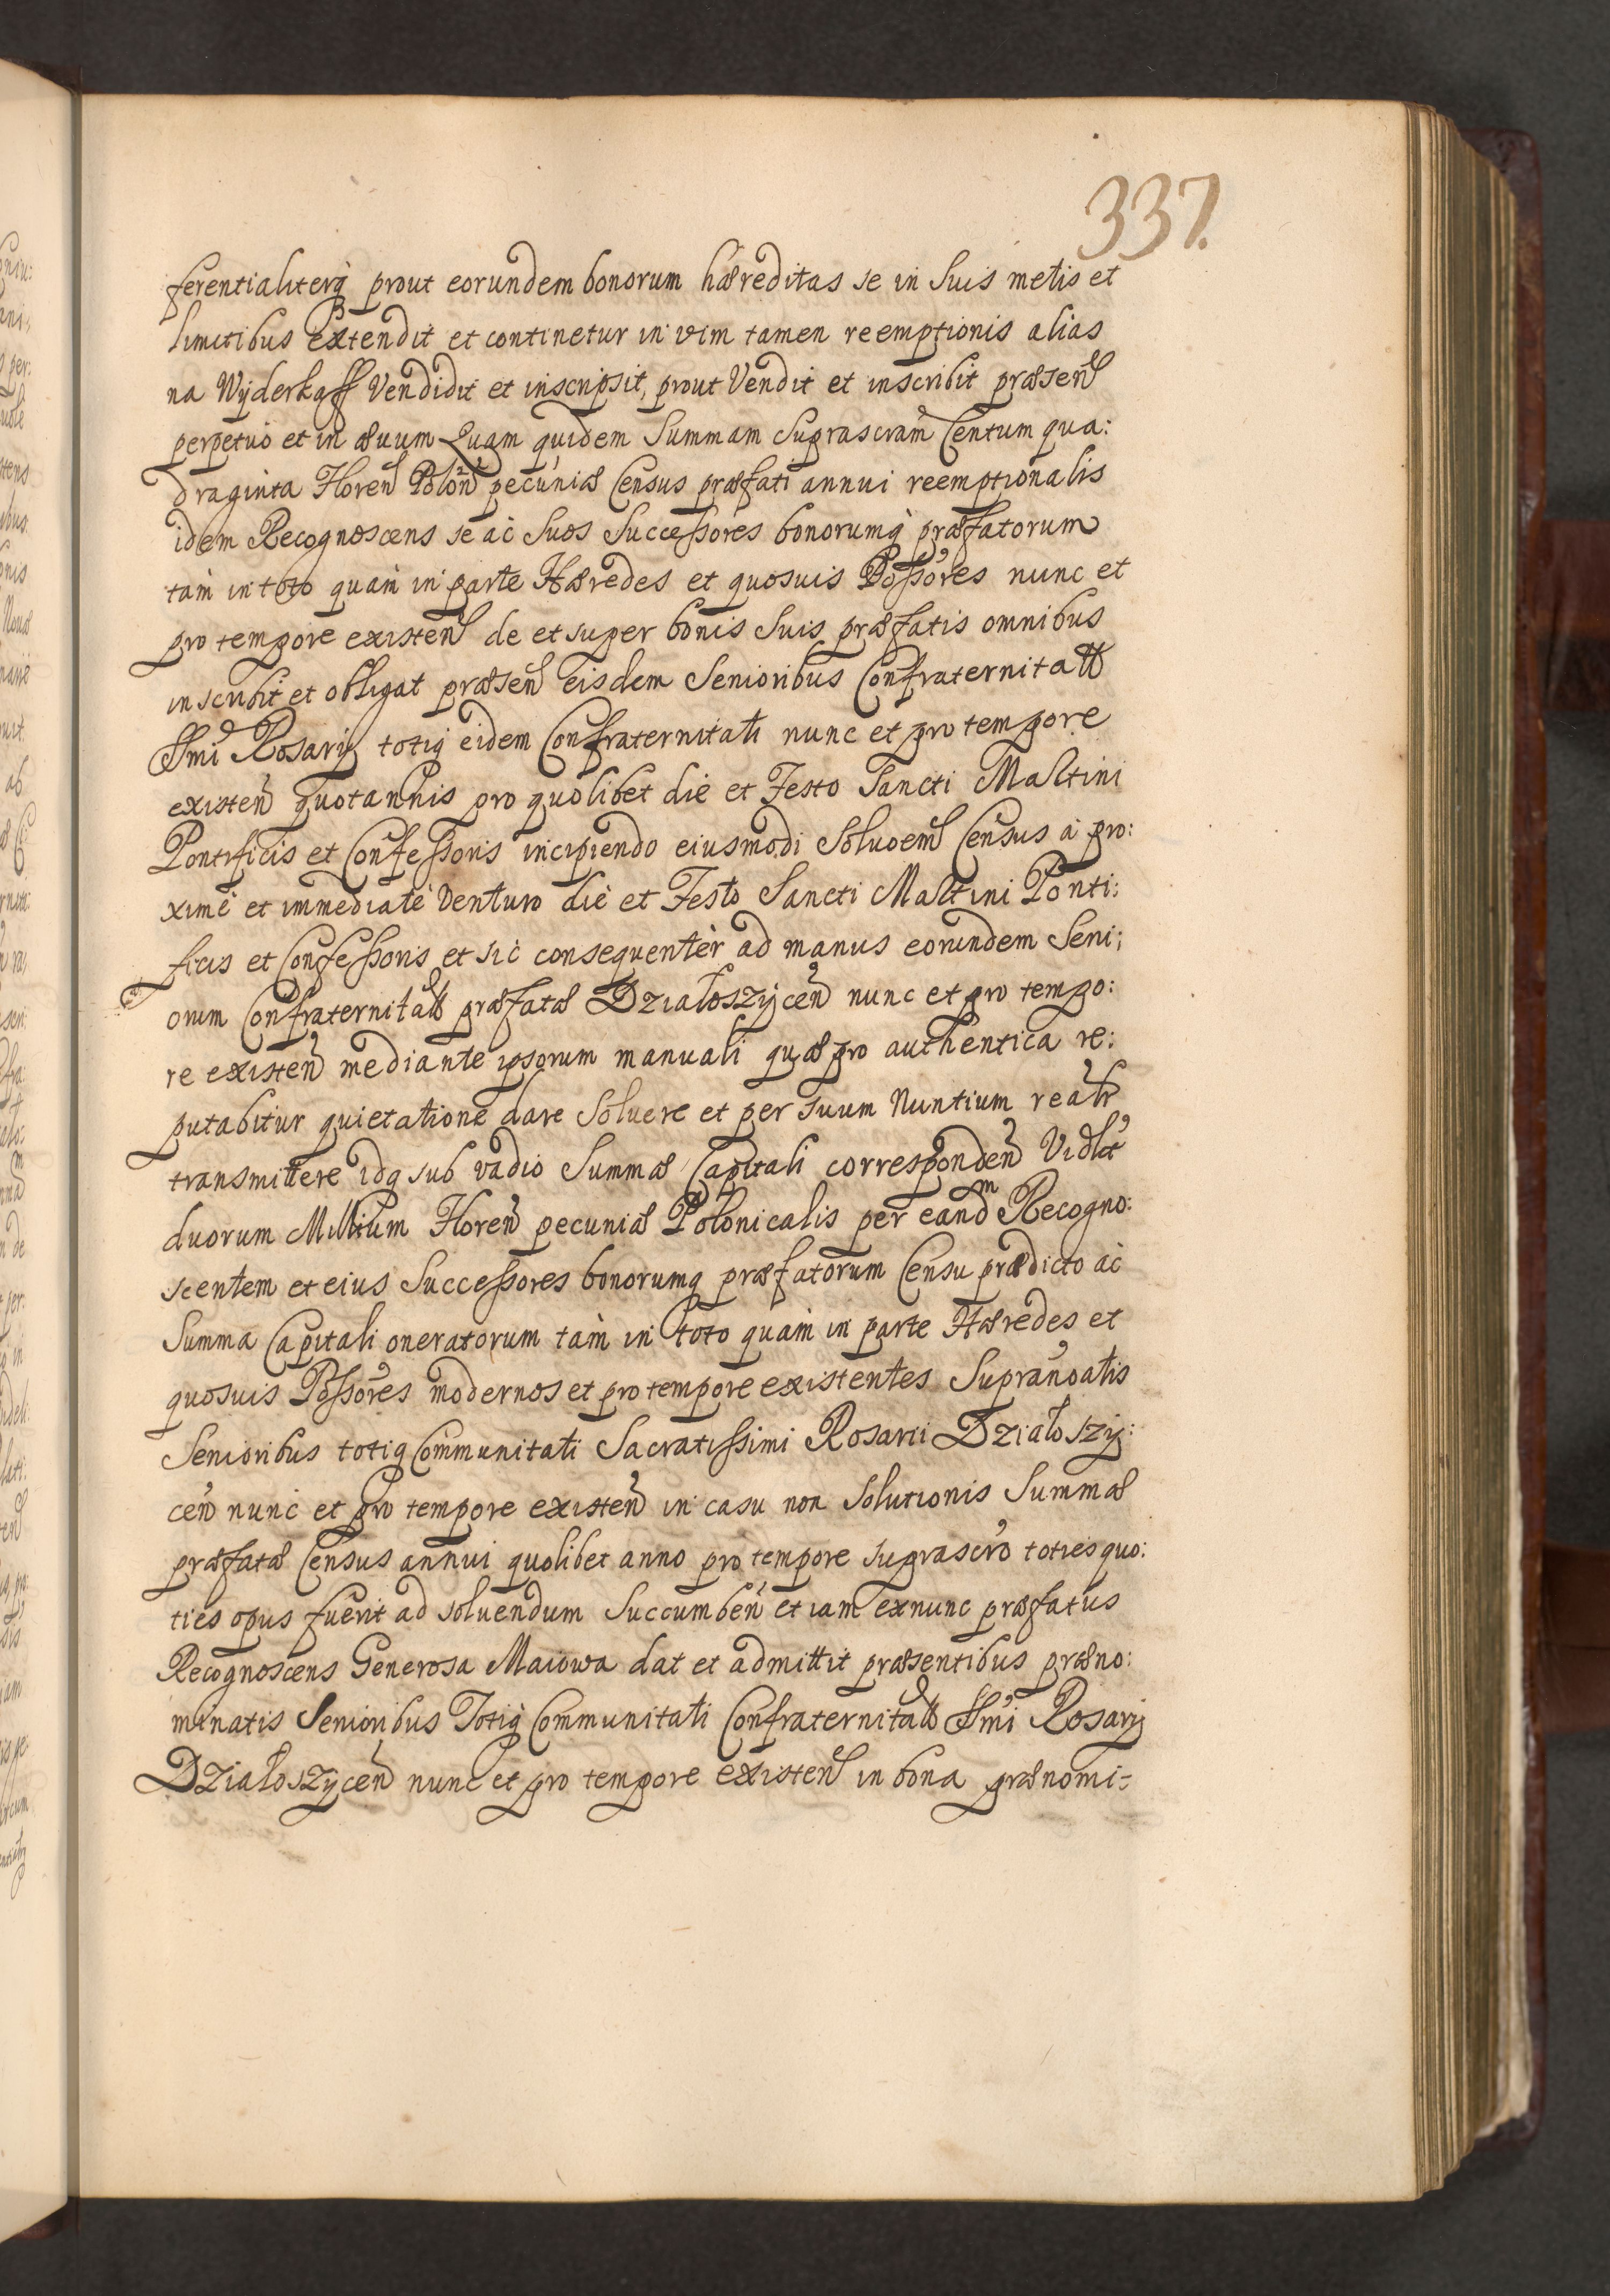 337.
ferentialiterq̃ prout eorundem bonorum hæreditas se in Suis metis et
limitibus extendit et continetur in vim tamen reemptionis alias
na Wyderkaff Vendidit et inscripsit, prout Vendit et inscribit præsen̄
perpetuò et in æuum Quam quidem Summam Suprascram̃ Centum qua:
draginta Floren̄ Polon̄ pecuniæ Census præfati annui reemptionalis
idem Recognoscens se ac Suos Successores bonorumq̃ præfatorum
tàm in toto quàm in parte Hæredes et quosuis Possores nunc et
pro tempore existen̄ de et super bonis Suis præfatis omnibus
inscribit et obligat præsen̄ eisdem Senioribus Confraternitatt
Ssmi Rosarij totiq̃ eidem Confraternitati nunc et pro tempore
existen̄ quotannis pro quolibet die et Festo Sancti Martini
Pontificis et Confessoris incipiendo eiusmodi Solucem̃ Census à pro:
ximè et immediatè Venturo die et Festo Sancti Martini Ponti:
ficis et Confessoris et sic consequentèr ad manus eorundem Seni:
orum Confraternitatt præfatæ Działoszycen̄ nunc et pro tempo:
re existen̄ mediante ipsorum manuali quæ pro authentica re:
putabitur quietatione dare Soluere et per suum Nuntium realr
transmittere idq̃ sub vadio Summæ Capitali corresponden̄ Vidlt
duorum Millium Floren̄ pecuniæ Polonicalis per eandm Recogno:
scentem et eius Successores bonorumq̃ præfatorum Censu prædicto ac
Summa Capitali oneratorum tàm in toto quàm in parte Hæredes et
quosuis Possores modernos et pro tempore existentes Supranoatis
Senioribus totiq̃ Communitati Sacratissimi Rosarii Działoszy:
cen̄ nunc et pro tempore existen̄ in casu non Solutionis Summæ
præfatæ Census annui quolibet anno pro tempore suprascro toties quo:
ties opus fuerit ad soluendum Succumben̄ et iam exnunc præfatus
Recognoscens Generosa Maiowa dat et admittit præsentibus præno:
minatis Senioribus Totiq̃ Communitati Confraternitatt Ssmi Rosarij
Działoszycen̄ nunc et pro tempore existen̄ in bona prænomi: